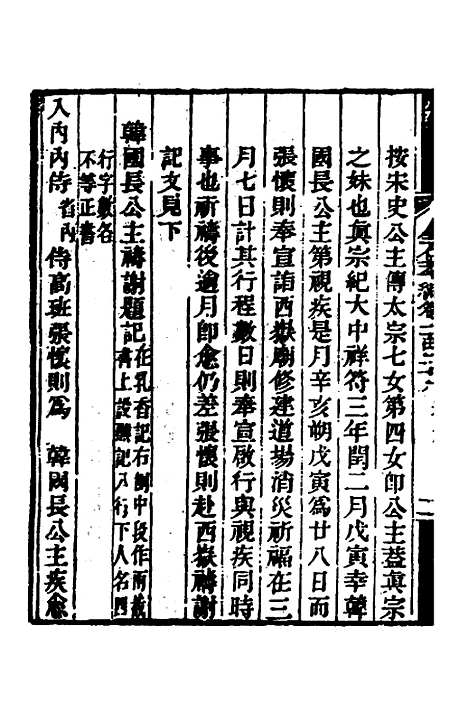 按宋史公主傳太宗七女第四女卽公主蓋眞宗
之妹也眞宗紀大中祥符三年閏二月戊寅幸韓
國長公主第視疾是月辛亥朔戊寅爲廿八日而
張懷則奉宣詣西嶽廟修建道場消災祈福在三
月七日計其行程數日則奉宣啟行與視疾同時
事也祈禱後逾月卽愈仍差張懷則赴西嶽禱謝
記文見下
韓國長公主禱謝題記在乳香記右側中段作兩截書上設醮記八行下人名四
行字數各
不等正書
入內內侍省內侍高班張懷則爲 韓國長公主疾愈